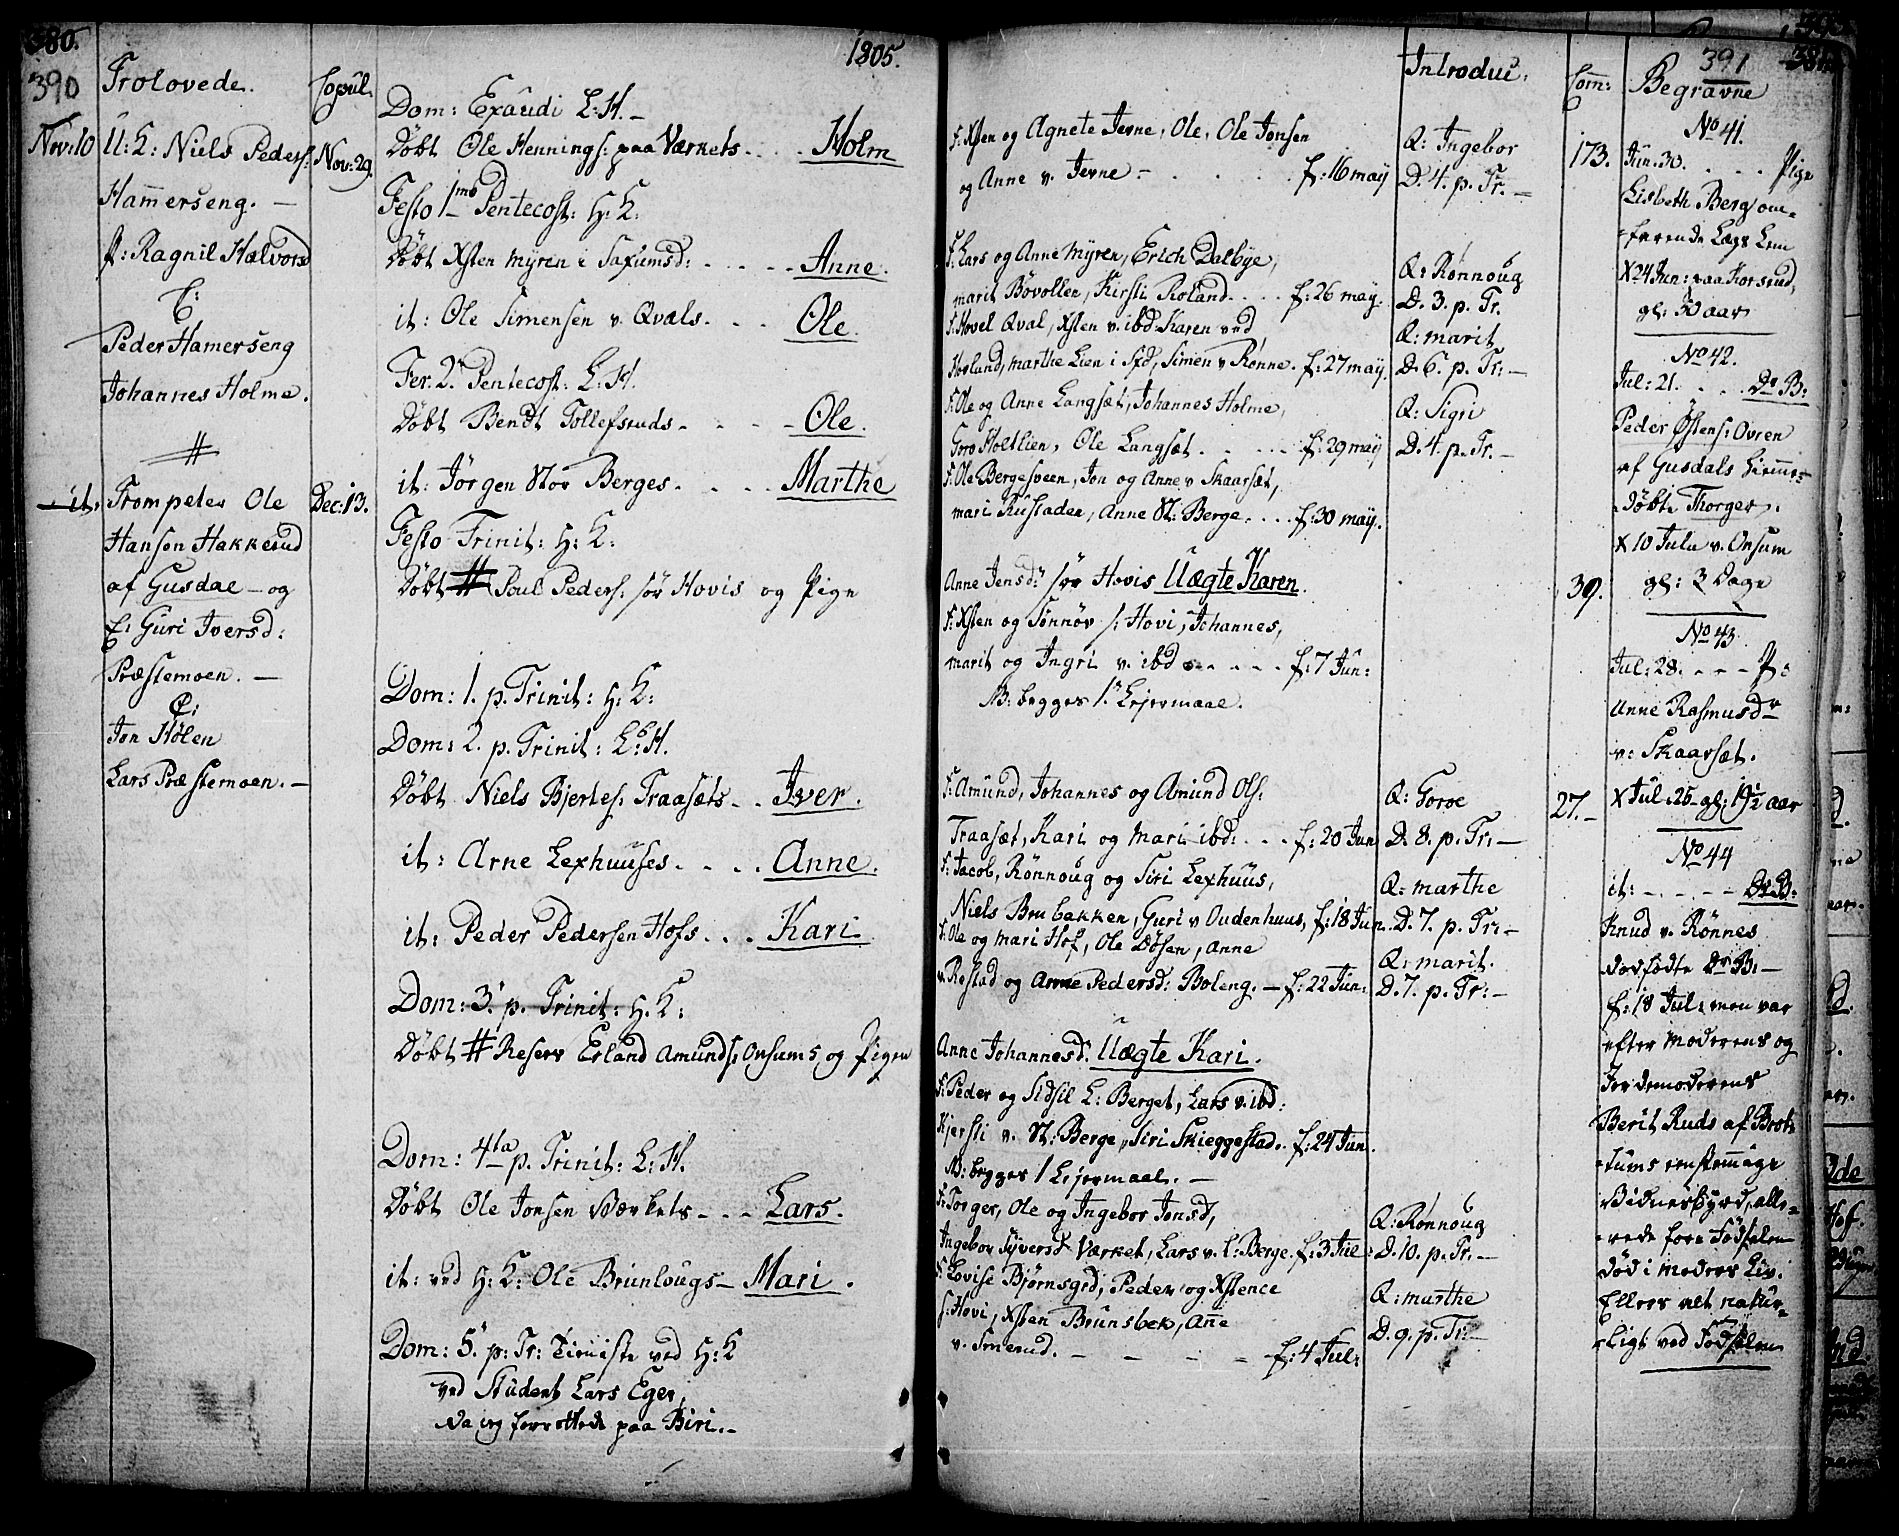 380.
390
1805.
Trolovede.
Copul.
Nov: 10 U: K: Niels Peders: Nov: 29.
Hammerseng. —
P: Ragnil Halvorsd
C:
Peder Hamerseng
Johannes Holme.
#
it: Trompeter Ole Dec: 13.
Hansen Hakkerud
af Gusdal — og
E: Guri Iversd:
Præstemoen. —
C:
Jon Hølen
Lars Præstemoen. —
Dom: Exaudi L: H. —
Døbt Ole Hennings: paa Værkets . . . . Holm
Festo 1mo Pentecost: H: K:
Døbt Xsten Myren i Saxumsd: . . . . Anne.
it: Ole Simensen v. Qvals . . . Ole.
Fer. 2. Pentecost: L: H.
Døbt Bendt Tollefsruds . . . . Ole.
it: Jørgen Stor Berges . . . . Marthe
Festo Trinit: H: K:
Døbt # Poul Peders: sør Hovis og Pige
Dom: 1. p. Trinit: H: K:
Dom: 2. p. Trinit: L: H.
Døbt Niels Bjertes: Traasæts . . Iver.
it: Arne Lexhuuses . . . . Anne.
it: Peder Pedersen Hofs . . . Kari
Dom: 3. p. Trinit: H: K:
Døbt # Reserv Erland Amunds: Onsums og Pigen
Dom: 4ta p. Trinit: L: H.
Døbt Ole Jonsen Værkets . . . Lars.
it: ved H: K: Ole Brunlougs — Mari.
Dom: 5. p: Tr: Tieneste ved H: K
ved Student Lars Eger,
da jeg forrettede paa Biri. —
F: Xsten og Agnete Jevne, Ole, Ole Jonsen
og Anne v. Jevne — . . . . f: 16 may
F: Lars og Anne Myren, Erich Dalbye,
marit Bøvollen, Kirsti Roland . . . . f: 26 may.
F: Hovel Qval, Xsten v. ibd: Karen ved
Horland, marthe Lien i Sxd, Simen v Rønne. f: 27 may.
F: Ole og Anne Langsæt, Johannes Holme,
Goro Holtlien, Ole Langsæt . . . . f: 29 may
F: Ole Bergesveen, Jon og Anne v Skaarsæt,
mari Rustaden, Anne St: Berge . . . . f: 30 may.
Anne Jensd: sør Hovis Uægte Karen.
F: Xsten og Sønnøv s: Hovi, Johannes,
marit og Ingri v. ibd . . . . . f: 7 Jun:
NB: begges 1. Lejermaal.
F: Amund, Johannes og Amund Ols:
Traasæt, Kari og Mari ibd: . . . f: 20 Jun
F: Jacob, Rønnoug og Siri Lexhuus,
Niels Brubakken, Guri v Oudenhuus, f: 18 Jun.
F: Ole og mari Hof, Ole Døsen, Anne
v. Rostad og Anne Pedersd: Boleng. — f: 22 Jun:
Anne Johannesd: Uægte Kari.
F: Peder og Sidsil L: Berget, Lars v. ibd:
Kjersti v. St: Berge, Siri Skieggestad. f: 24 Jun.
NB: begges 1 Lejermaal. —
F: Torger, Ole og Ingebor Jonsd,
Ingebor Syversd Værket, Lars v. l: Berge. f: 3 Jul:
F: Lovise Bjørnsgrd, Peder og Xstence
s: Hovi, Xsten Brunsbek, Anne
v. Smerud. — — — — f: 4 Jul:
Introduc:
Q: Ingebor
D. 4. p. Tr. —
Q: Rønnoug
D. 3. p. Tr.
Q: marit
D. 6. p. Tr: —
Q: Sigri
D. 4. p. Tr. —
Q: Goroe
D. 8. p. Tr: —
Q: marthe
D. 7. p. Tr: —
Q: marit.
D. 7. p. Tr: —
Q: Rønnoug
D. 10. p. Tr. —
Q: marthe
D. 9. p. Tr: —
Com:
173.
39.
27. —
391
381.
Begravne
No 41.
Jun. 30. . . . Pige
Lisbeth Berg om-
farende Lægs Lem
X 24 Jun: paa Korsrud,
gl: 30 aar
No 42.
Jul: 21. . . . Dr B:
Peder Østens: Ovren
af Gusdals hiemme-
døbte Thorger.
X 10 Julii v. Onsum
gl: 3 Dage
No 43.
Jul: 28. . . — P:
Anne Rasmusdr
v: Skaarsæt.
X Jul: 25 gl: 19 1/2 aar
No 44
it: — — — Dr B:
Knud v. Rønnes
dødfødte Dr B: —
f: 18 Jul: men var
efter Moderens og
Jordemoderens
Berit Ruds af Brot-
tums eenstemmige
Vidnesbyrd, alle-
rede före Fødselen
død i moders Liv.
Ellers alt natur-
ligt ved Fødselen